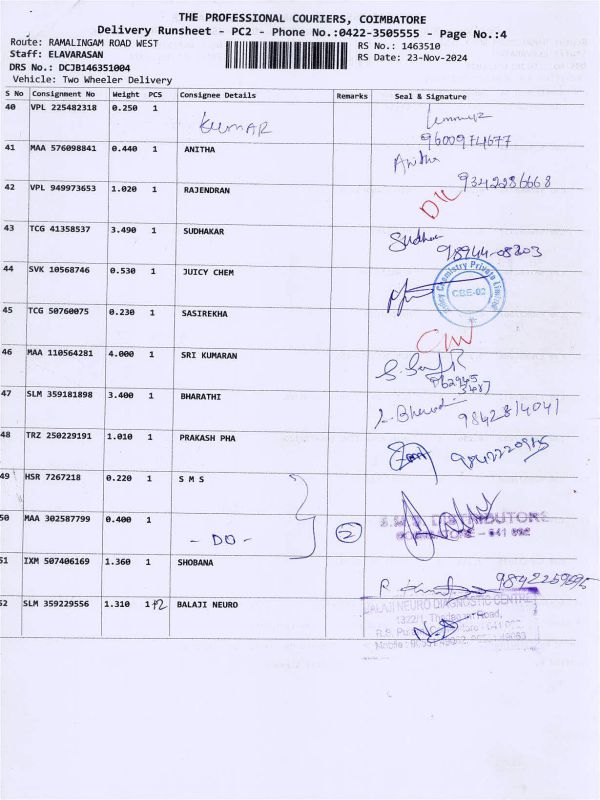 THE PROFESSIONAL COURIERS, COIMBATORE
Delivery Runsheet - PC2 - Phone No.:0422-3505555 - Page No.:4
Route: RAMALINGAM ROAD WEST RS No.: 1463510
Staff: ELAVARASAN RS Date: 23-Nov-2024
DRS No.: DCJB146351004
Vehicle: Two Wheeler Delivery
S No Consignment No Weight PCS Consignee Details Remarks Seal & Signature
40 VPL 225482318 0.250 1 KUMAR
41 MAA 576098841 0.440 1 ANITHA Anitha
9342286668
42 VPL 949973653 1.020 1 RAJENDRAN DIL
43 TCG 41358537 3.490 1 SUDHAKAR
98944-08303
44 SVK 10568746 0.530 1 JUICY CHEM Juicy Chemistry Private Limited
CBE-02
45 TCG 50760075 0.230 1 SASIREKHA
46 MAA 110564281 4.000 1 SRI KUMARAN
47 SLM 359181898 3.400 1 BHARATHI 9842814041
48 TRZ 250229191 1.010 1 PRAKASH PHA
49 HSR 7267218 0.220 1 S M S
50 MAA 302587799 0.400 1 - DO - 2 DISTRIBUTORS
COIMBATORE - 641 002
51 IXM 507406169 1.360 1 SHOBANA
52 SLM 359229556 1.310 1+2 BALAJI NEURO BALAJI NEURO DIAGNOSTIC CENTRE
Road,